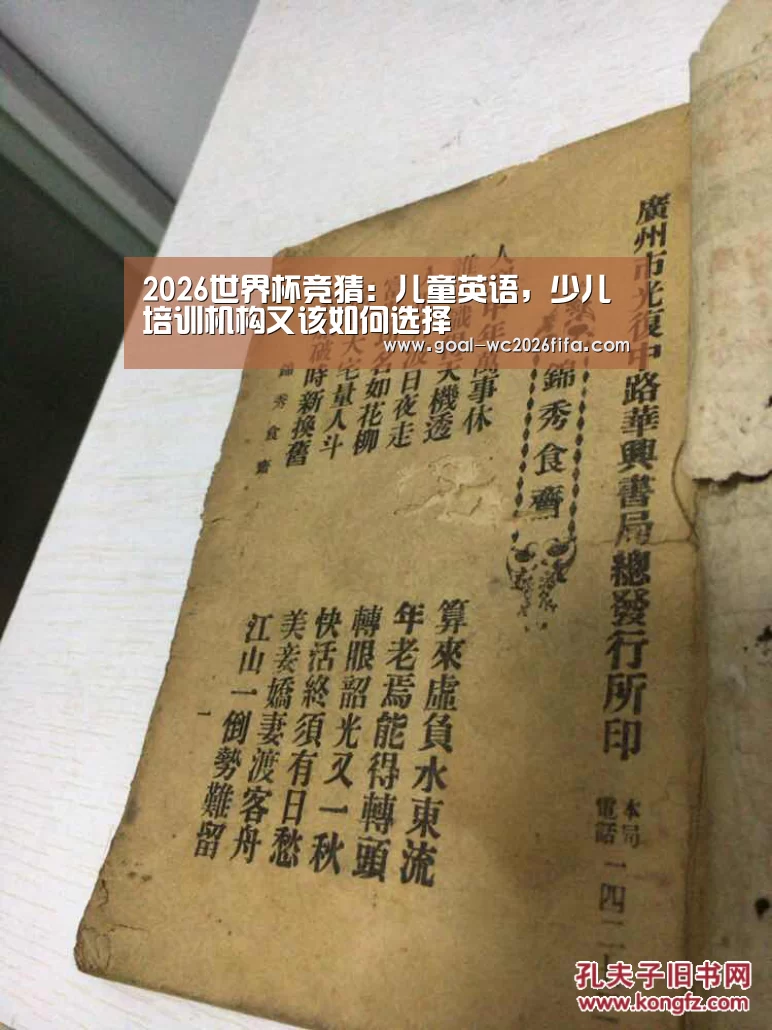 2026世界杯竞猜：儿童英语，少儿
培训机构又该如何选择
www.goal-wc2026fifa.com
廣州市光復中路華興書局總發行所印
本局
電話一四二
錦秀食齋
年萬事休
天機透
日夜走
名如花柳
大宅量人斗
破時新換舊
錦秀食齋
算來虛負水東流
年老焉能得轉頭
轉眼韶光又一秋
快活終須有日愁
美妾嬌妻渡客舟
江山一倒勢難留
一
孔夫子旧书网
www.kongfz.com